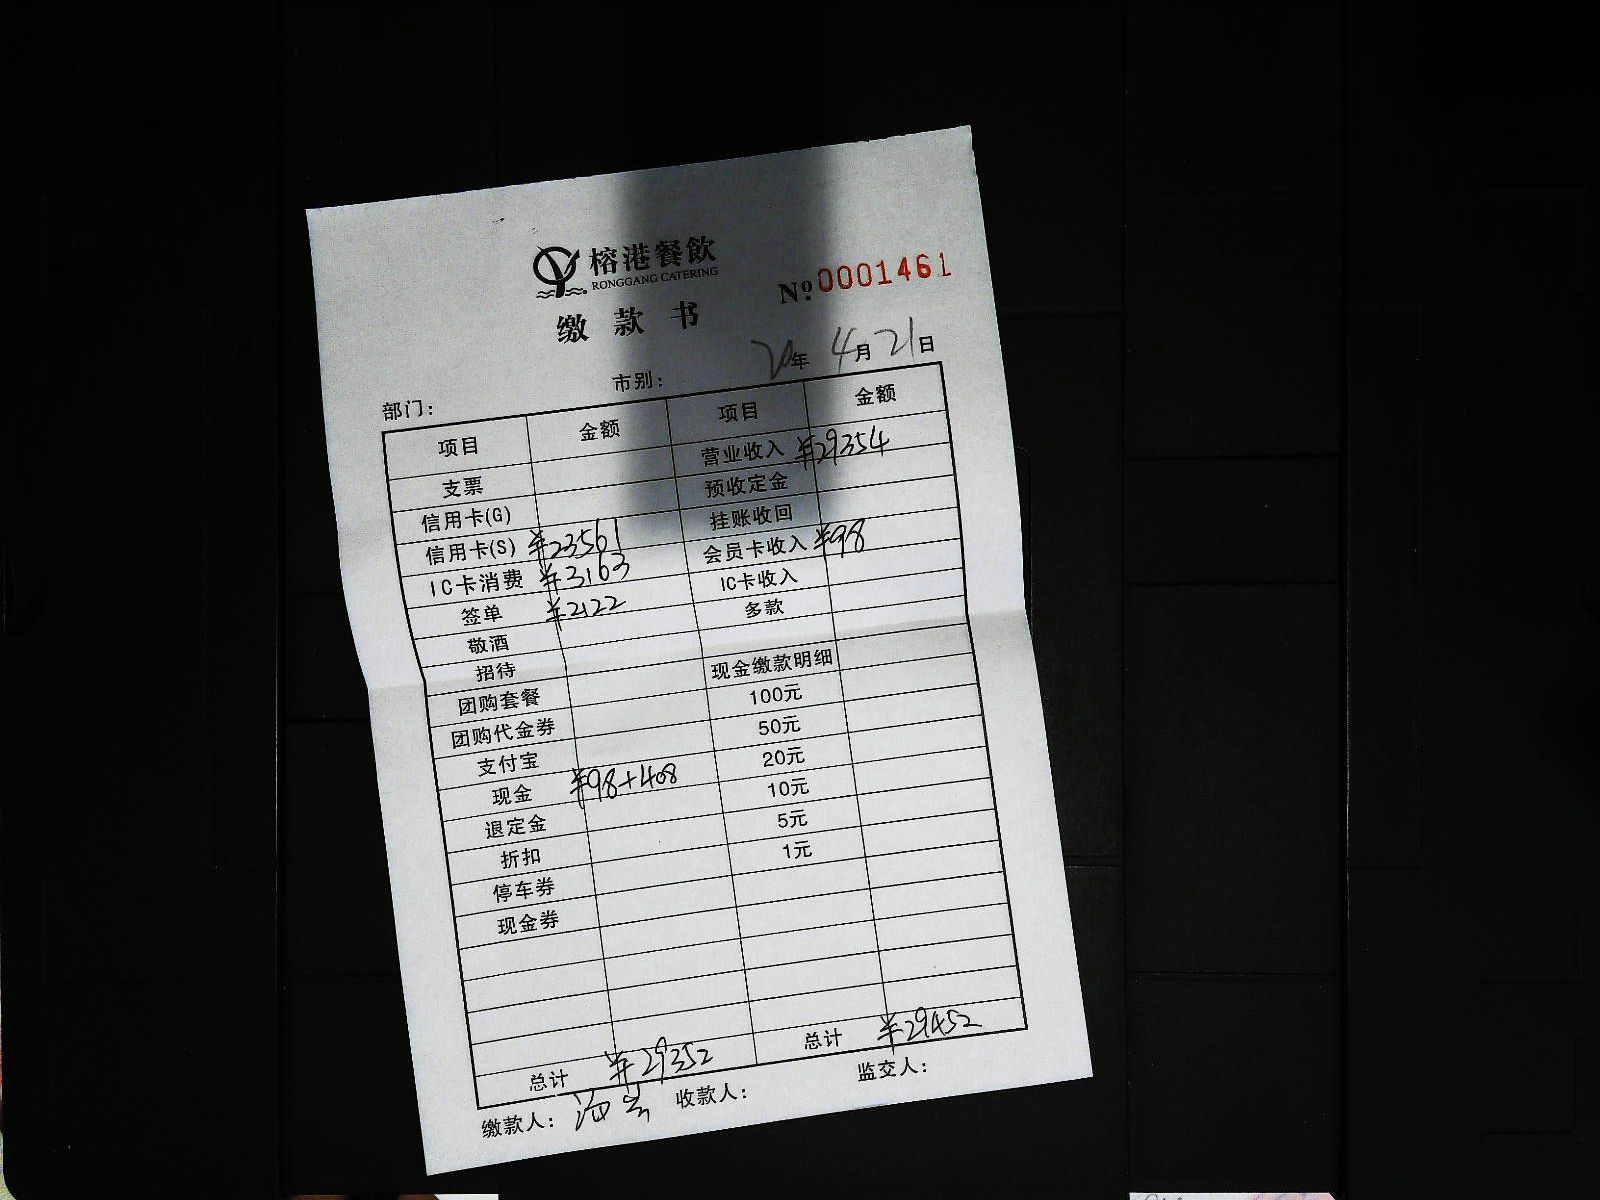 榕港餐飲
RONGGANG CATERING
缴款书 №0001461
20年4月21日
部门： 市别：
项目 金额 项目 金额
支票 营业收入 ¥29354
信用卡(G) 预收定金
信用卡(S) ¥23561 挂账收回
IC卡消费 ¥3163 会员卡收入 ¥98
签单 ¥2122 IC卡收入
敬酒 多款
招待
团购套餐 现金缴款明细
团购代金券 100元
支付宝 50元
现金 ¥98+408 20元
退定金 10元
折扣 5元
停车券 1元
现金券
总计 ¥29352 总计 ¥29452
缴款人： 收款人： 监交人：